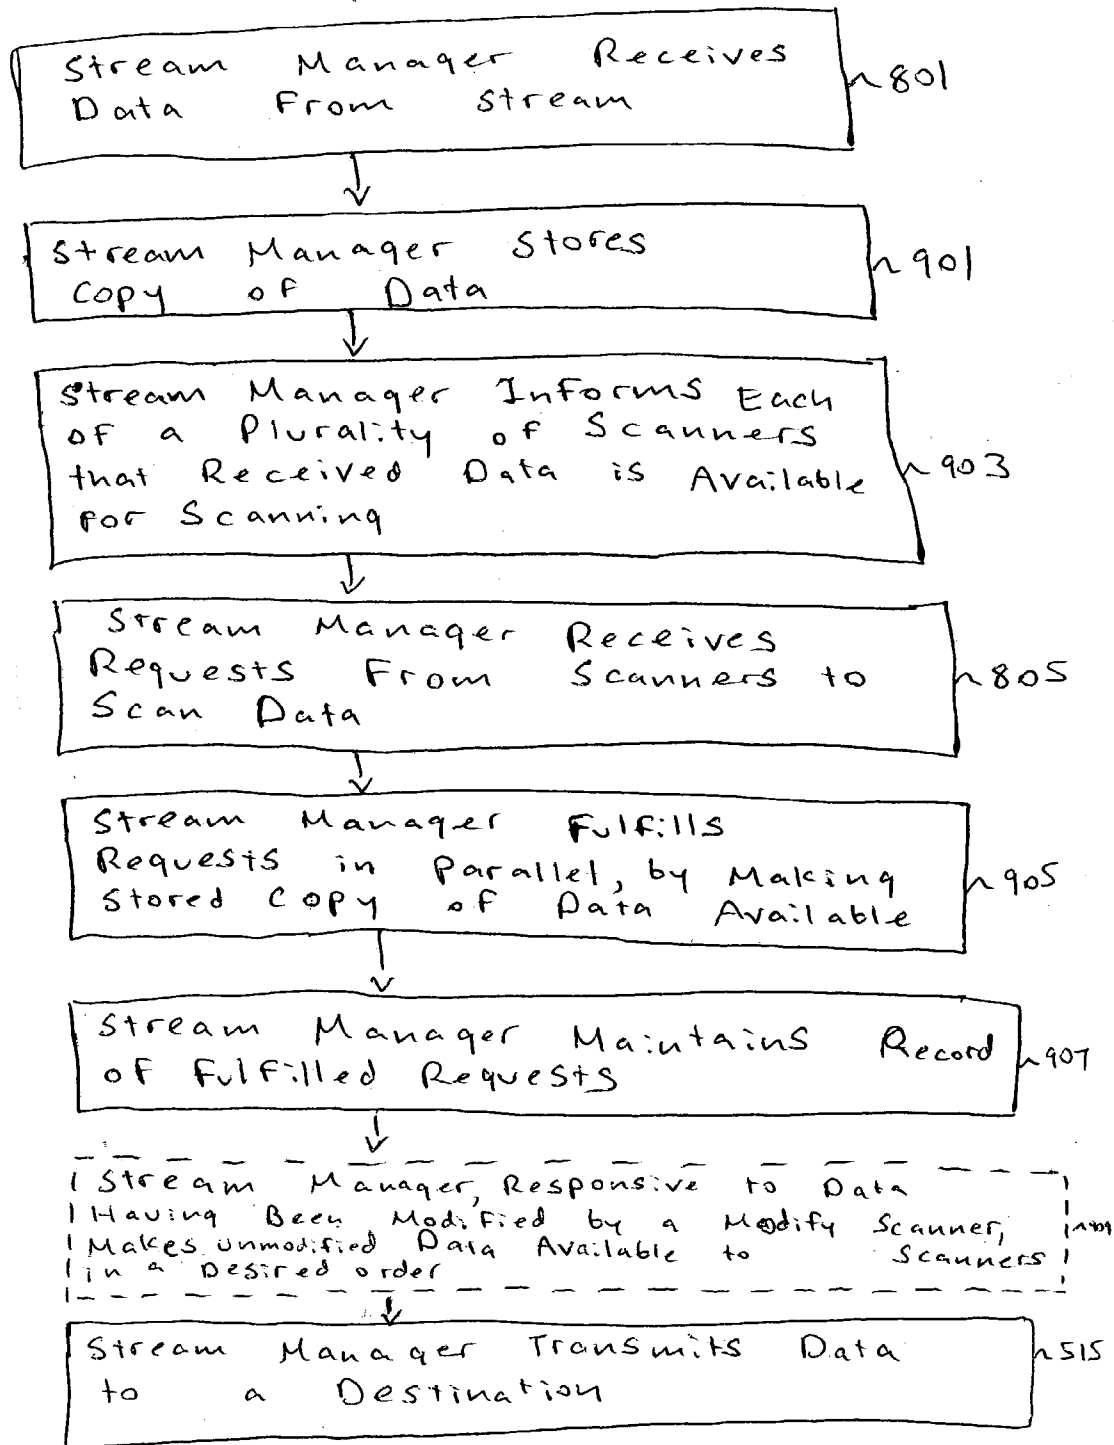 Stream Manager Receives
Data From Stream
801
Stream Manager Stores
Copy of Data
901
Stream Manager Informs Each
of a Plurality of Scanners
that Received Data is Available
for Scanning
903
Stream Manager Receives
Requests From Scanners to
Scan Data
805
Stream Manager Fulfills
Requests in Parallel, by Making
Stored Copy of Data Available
905
Stream Manager Maintains Record
of Fulfilled Requests
907
Stream Manager, Responsive to Data
Having Been Modified by a Modify Scanner,
Makes unmodified Data Available to Scanners
in a Desired order
Stream Manager Transmits Data
to a Destination
515